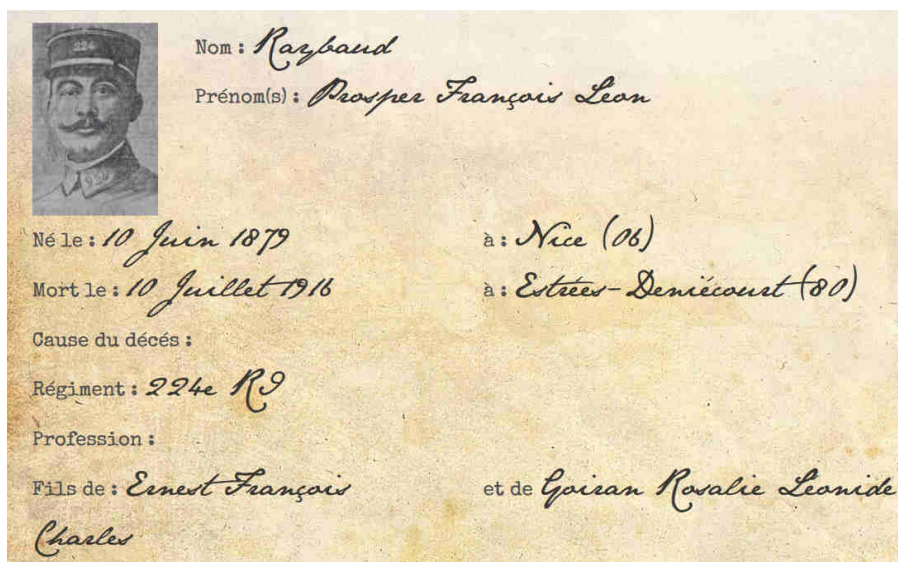 224
Nom : Raybaud
Prénom(s) : Prosper François Léon
Né le : 10 Juin 1879 à : Nice (06)
Mort le : 10 Juillet 1916 à : Estrées-Deniécourt (80)
Cause du décés :
Régiment : 224e RI
Profession :
Fils de : Ernest François et de Goiran Rosalie Léonide
Charles